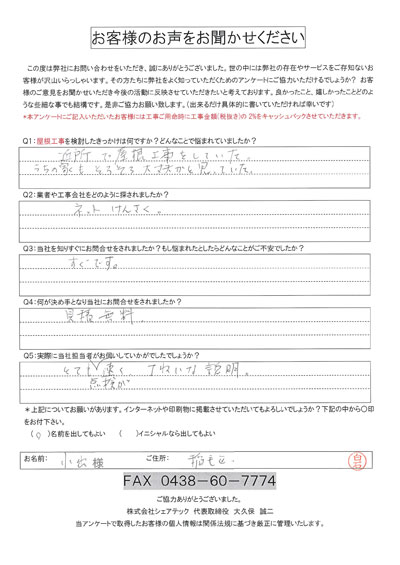 お客様のお声をお聞かせください
この度は弊社にお問い合わせをいただき、誠にありがとうございました。世の中には弊社の存在やサービスをご存知ないお
客様が沢山いらっしゃいます。その方たちに弊社をよく知っていただくためのアンケートにご協力いただけるでしょうか? お客
様のご意見をお聞かせいただき今後の活動に反映させていただきたいと考えております。良かったこと、嬉しかったことどのよ
うな些細な事でも結構です。是非ご協力お願い致します。(出来るだけ具体的に書いていただければ幸いです)
*本アンケートにご記入いただいたお客様には工事ご用命時に工事金額(税抜き)の 2%をキャッシュバックさせていただきます。
Q1:屋根工事を検討したきっかけは何ですか?どんなことで悩まれていましたか?
近所で屋根工事をしていた。
うちの家もそろそろ大丈夫かと思っていた。
Q2:業者や工事会社をどのように探されましたか?
ネットけんさく。
Q3:当社を知りすぐにお問合せをされましたか?もし悩まれたとしたらどんなことがご不安でしたか?
すぐです。
Q4:何が決め手となり当社にお問合せをされましたか?
見積無料。
Q5:実際に当社担当者がお伺いしていかがでしたでしょうか?
とても速く、ていねいな説明。
点検が
*上記についてお願いがあります。インターネットや印刷物に掲載させていただいてもよろしいでしょうか?下記の中から〇印
をお付下さい。
(○)名前を出してもよい ( )イニシャルなら出してもよい
お名前: 小 様 ご住所: 稲毛区
FAX 0438-60-7774
ご協力ありがとうございました。
株式会社シェアテック 代表取締役 大久保 誠二
当アンケートで取得したお客様の個人情報は関係法規に基づき厳正に管理いたします。